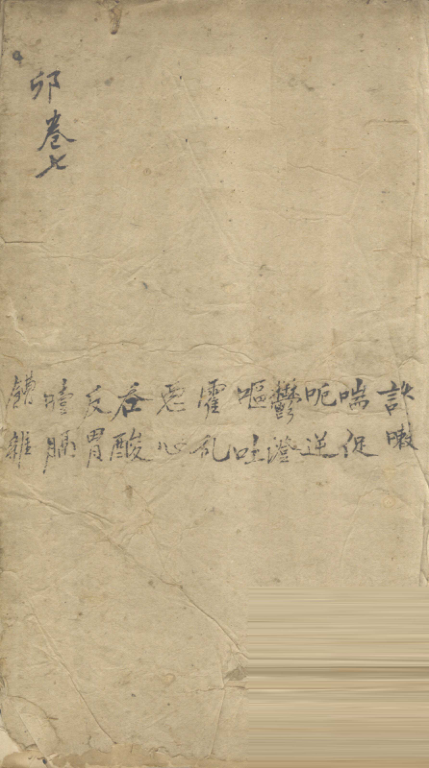 卯卷七
咳嗽
喘促
呃逆
鬱澄
嘔吐
霍乱
恶心
吞酸
反胃
噎膈
饐雜